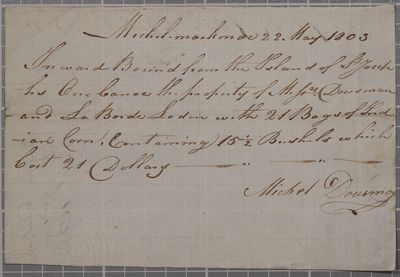 Michilimackinac 22. May 1803
Inward Bound from the Island of St Joseph
his One Canoe the property of Mssrs Dousman
and La Borde Loden with 21 Bags of Ind
-ian Corn, Containing 15 1/2 Bushels which
Cost 21 Dollars — " — " —
Michel Dousman